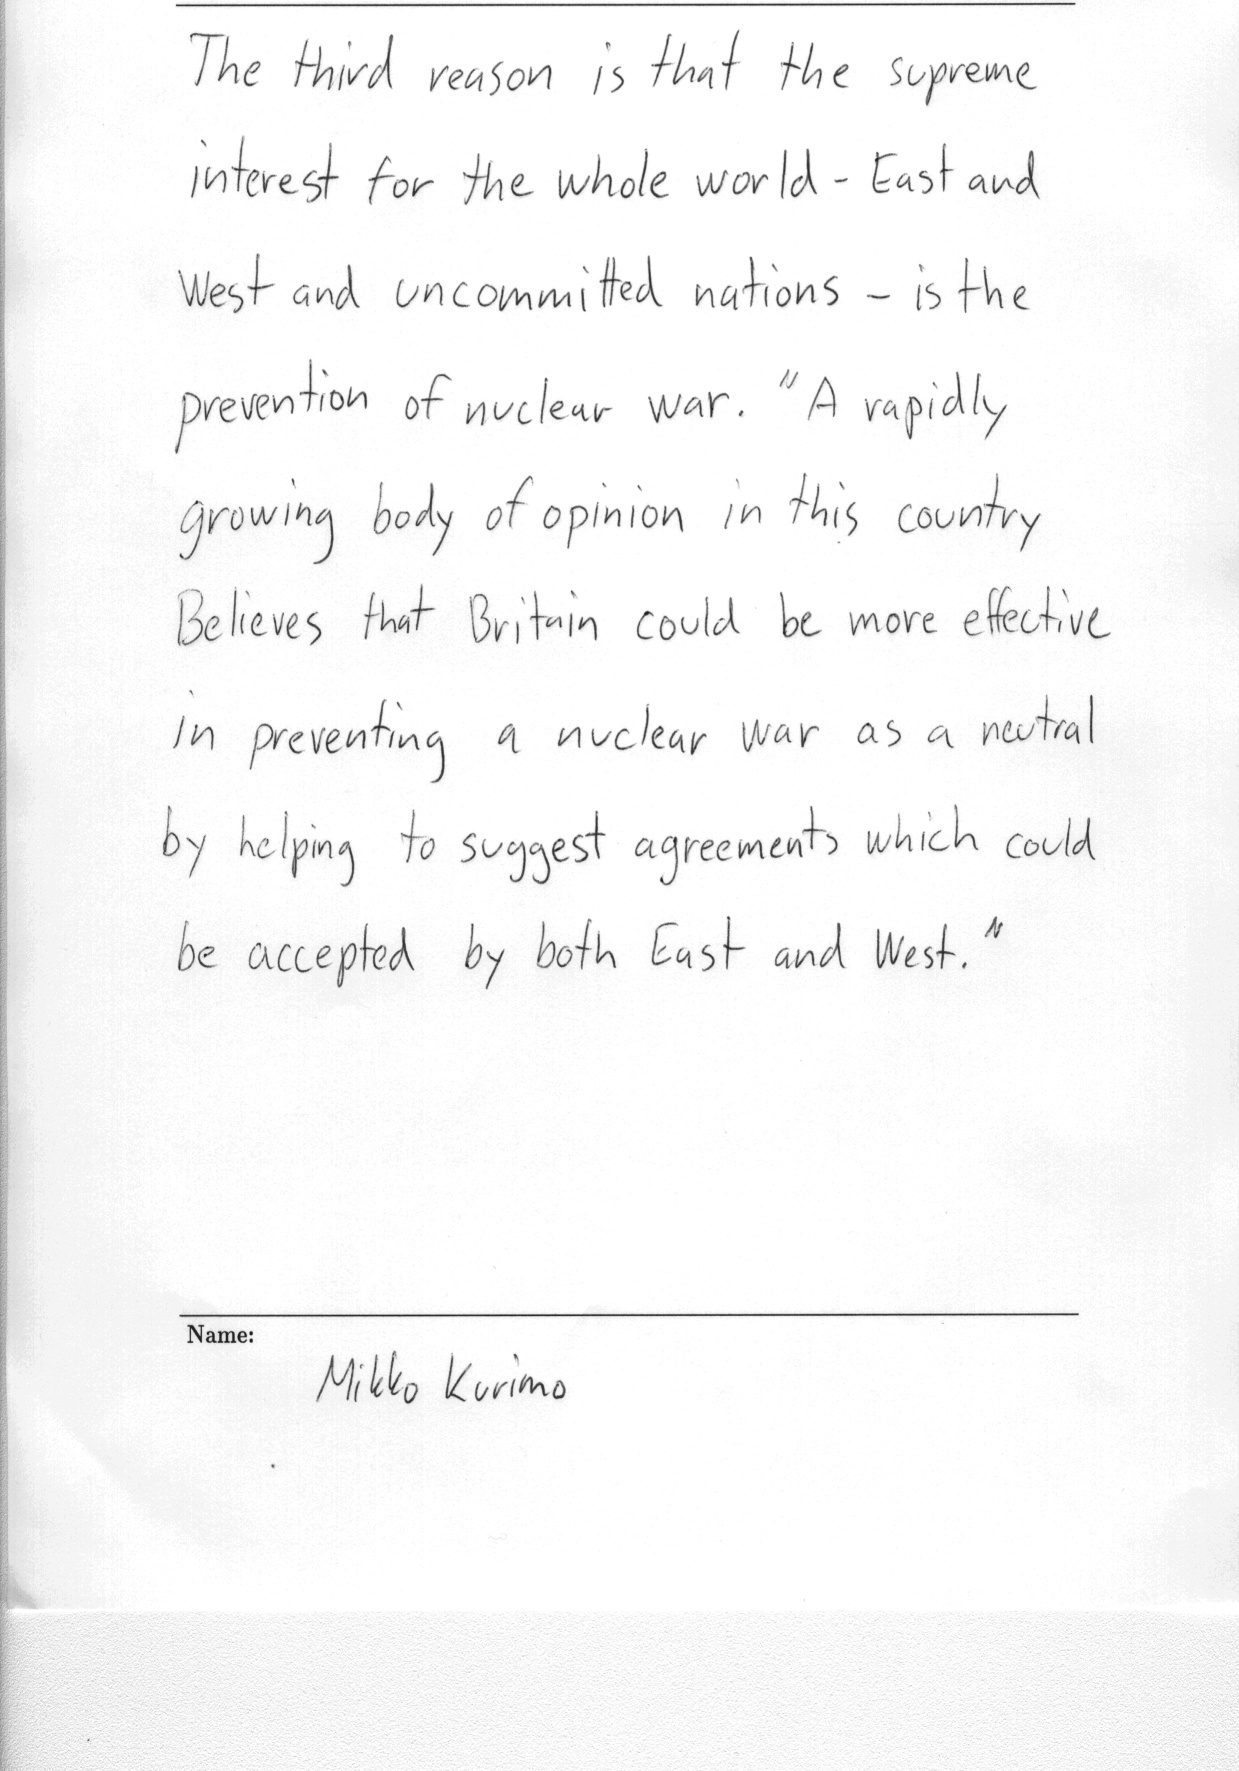 The third reason is that the supreme
interest for the whole world - East and
West and uncommitted nations - is the
prevention of nuclear war. "A rapidly
growing body of opinion in this country
Believes that Britain could be more effective
in preventing a nuclear war as a neutral
by helping to suggest agreements which could
be accepted by both East and West."
Name:
Mikko Kurimo